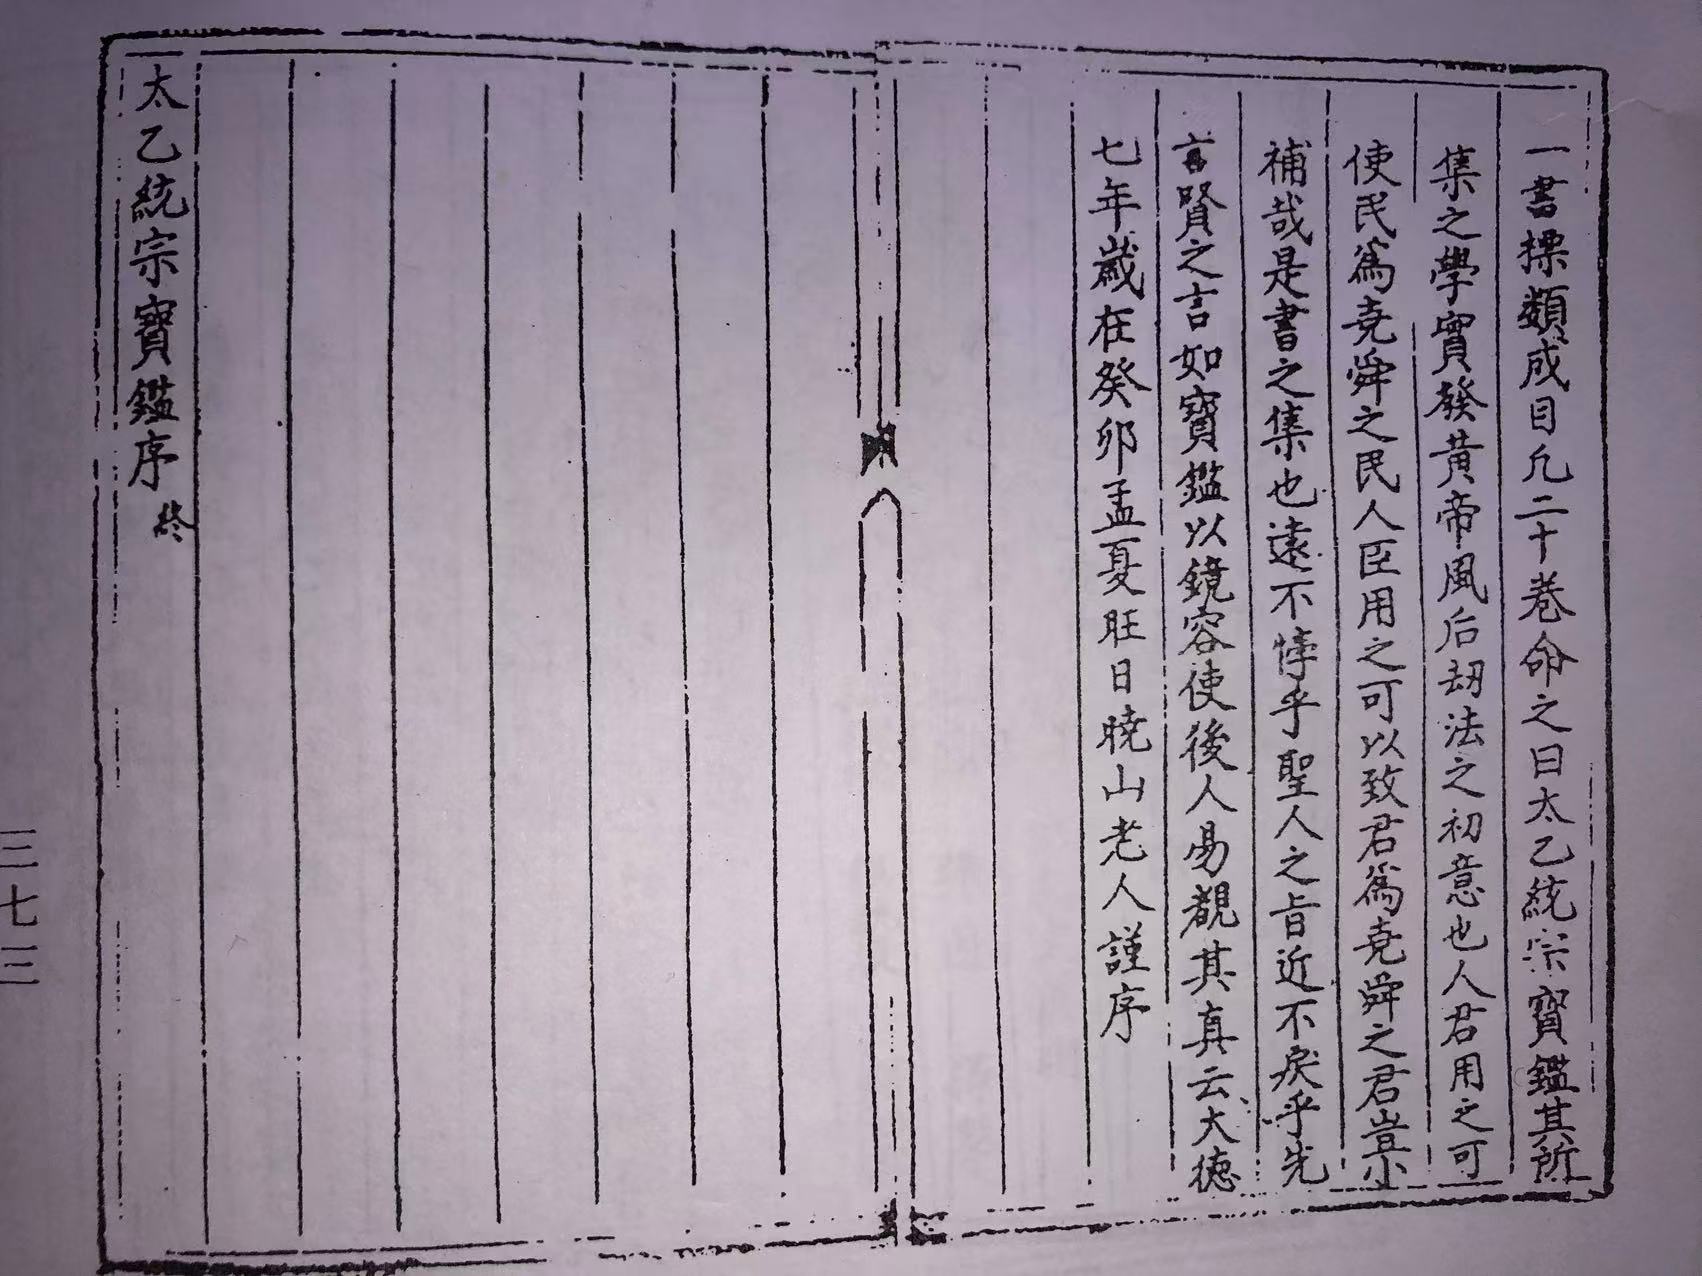 一書摞類成目凡二十巻命之曰太乙統宗寳鑑其所
集之學實發黄帝風后刼法之初意也人君用之可
使民爲堯舜之民人臣用之可以致君爲堯舜之君豈小
補哉是書之集也遠不悖乎聖人之旨近不戾乎先
賢之言如寳鑑以鏡容使後人易覩其真云大徳
七年歲在癸卯孟夏旺日曉山老人謹序
太乙統宗寳鑑序 終
三七三